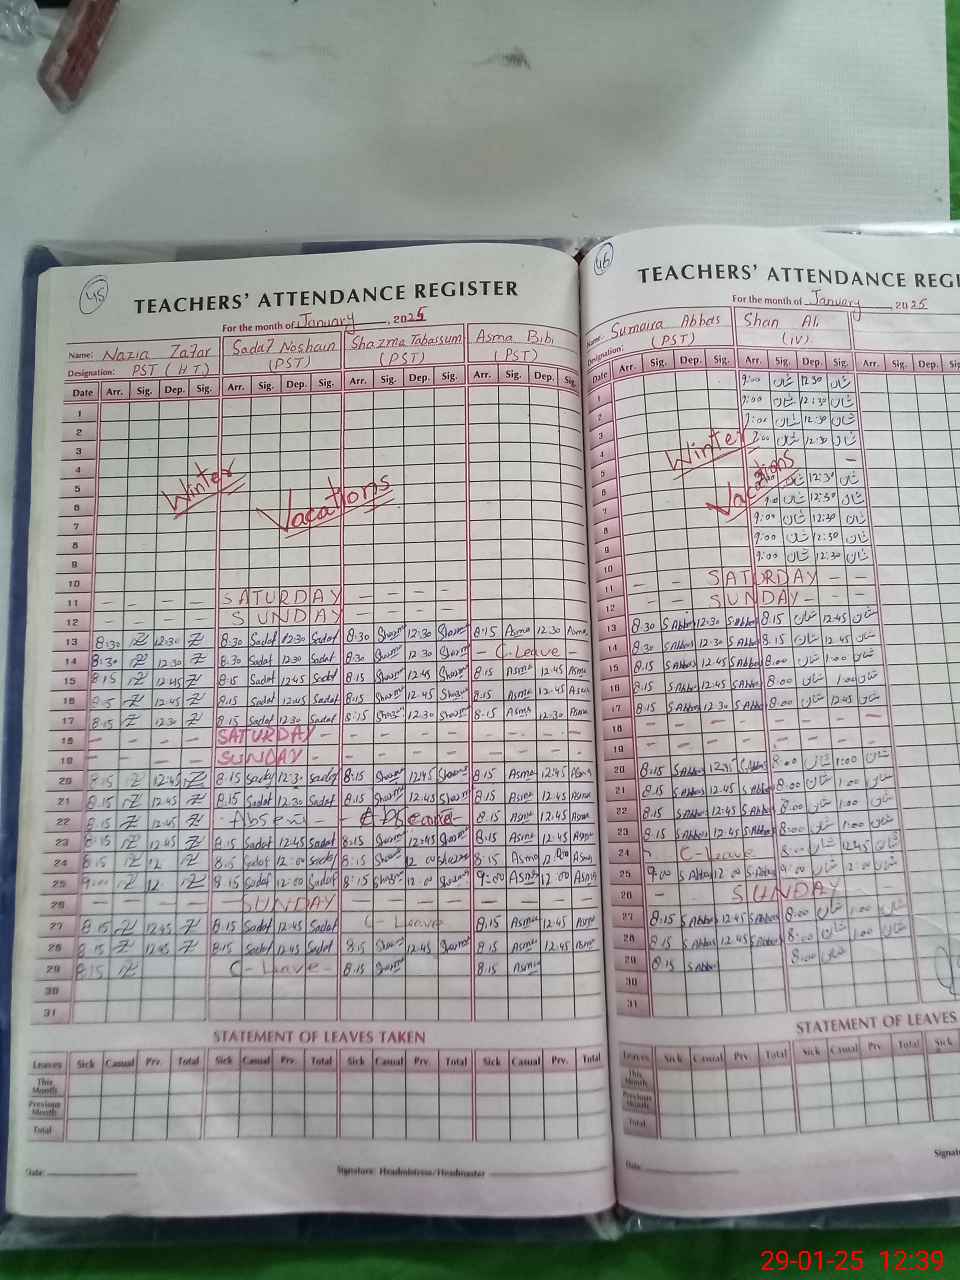 45
TEACHERS' ATTENDANCE REGISTER
For the month of January, 2025
Name: Nazia Zafar Sadaf Noshain Shazma Tabassum Asma Bibi
Designation: PST (H T.) (PST) (PST) (PST)
Date Arr. Sig. Dep. Sig. Arr. Sig. Dep. Sig. Arr. Sig. Dep. Sig. Arr. Sig. Dep. Sig.
1
2
3
4
5
6
7
8
9
10
Winter Vacations
11 – – – – SATURDAY – – – –
12 – – – – SUNDAY – – – –
13 8:30 12:30 8:30 Sadaf 12:30 Sadaf 8:30 12:30 8:15 Asma 12:30 Asma
14 8:30 12:30 8:30 Sadaf 12:30 Sadaf 8:30 12:30 – C-Leave –
15 8:15 12:45 8:15 Sadaf 12:45 Sadaf 8:15 12:45 8:15 Asma 12:45 Asma
16 12:45 8:15 Sadaf 12:45 Sadaf 8:15 12:45 8:15 Asma 12:45 Asma
17 8:15 12:30 8:15 Sadaf 12:30 Sadaf 8:15 12:30 8:15 Asma 12:30 Asma
18 SATURDAY
19 SUNDAY
20 8:15 12:45 8:15 8:15 12:45 8:15 Asma 12:45 Asma
21 8:15 12:45 8:15 Sadaf 12:30 Sadaf 8:15 12:45 8:15 Asma 12:45 Asma
22 8:15 12:45 Absen 8:15 Asma 12:45 Asma
23 8:15 12:45 8:15 Sadaf 12:45 Sadaf 8:15 12:45 8:15 Asma 12:45 Asma
24 8:15 12 8:15 Sadaf 12:00 8:15 12:00 8:15 Asma 12:00 Asma
25 9:00 12 8:15 Sadaf 12:00 Sadaf 8:15 12:00 9:00 Asma 12:00 Asma
26 – – – – SUNDAY – – – –
27 8:15 12:45 8:15 Sadaf 12:45 Sadaf C-Leave 8:15 Asma 12:45 Asma
28 8:15 12:45 8:15 Sadaf 12:45 Sadaf 8:15 12:45 8:15 Asma 12:45 Asma
29 8:15 C-Leave 8:15 8:15 Asma
30
31
STATEMENT OF LEAVES TAKEN
Leaves Sick Casual Prv. Total Sick Casual Prv. Total Sick Casual Prv. Total Sick Casual Prv. Total
This Month
Previous Month
Total
Date: Signature: Headmistress/Headmaster
46
TEACHERS' ATTENDANCE REGI
For the month of January 2025
Name: Sumaira Abbas Shan Ali
Designation: (PST) (IV)
Date Arr. Sig. Dep. Sig. Arr. Sig. Dep. Sig. Arr. Sig. Dep.
1 9:00 شان 12:30 شان
2 9:00 شان 12:30 شان
3 9:00 شان 12:30 شان
4 9:00 شان 12:30 شان
5 –
6 شان 12:30 شان
7 شان 12:30 شان
8 9:00 شان 12:30 شان
9 9:00 شان 12:30 شان
10 9:00 شان 12:30 شان
Winter Vacations
11 – – SATURDAY – –
12 – – SUNDAY – –
13 8:30 S Abbas 12:30 S Abbas 8:15 شان 12:45 شان
14 8:30 S Abbas 12:30 S Abbas 8:15 شان 12:45 شان
15 8:15 S Abbas 12:45 S Abbas 8:00 شان 1:00 شان
16 8:15 S Abbas 12:45 S Abbas 8:00 شان 1:00 شان
17 8:15 S Abbas 12:30 S Abbas 8:00 شان 12:45 شان
18 – – – – – – –
19 – – – – – – –
20 8:15 S Abbas 12:45 S Abbas 8:00 شان 1:00 شان
21 8:15 S Abbas 12:45 S Abbas 8:00 شان 1:00 شان
22 8:15 S Abbas 12:45 S Abbas 8:00 شان 1:00 شان
23 8:15 S Abbas 12:45 S Abbas 8:00 شان 1:00 شان
24 C-Leave 8:00 شان 12:45 شان
25 9:00 S Abbas 12:00 S Abbas 9:00 شان شان
26 – – SUNDAY – –
27 8:15 S Abbas 12:45 S Abbas 8:00 شان 1:00 شان
28 8:15 S Abbas 12:45 S Abbas 8:00 شان 1:00 شان
29 8:15 S Abbas 8:00 شان
30
31
STATEMENT OF LEAVES
Leaves Sick Casual Prv. Total Sick Casual Prv. Total Sick
This Month
Previous Month
Total
Date:
29-01-25 12:39